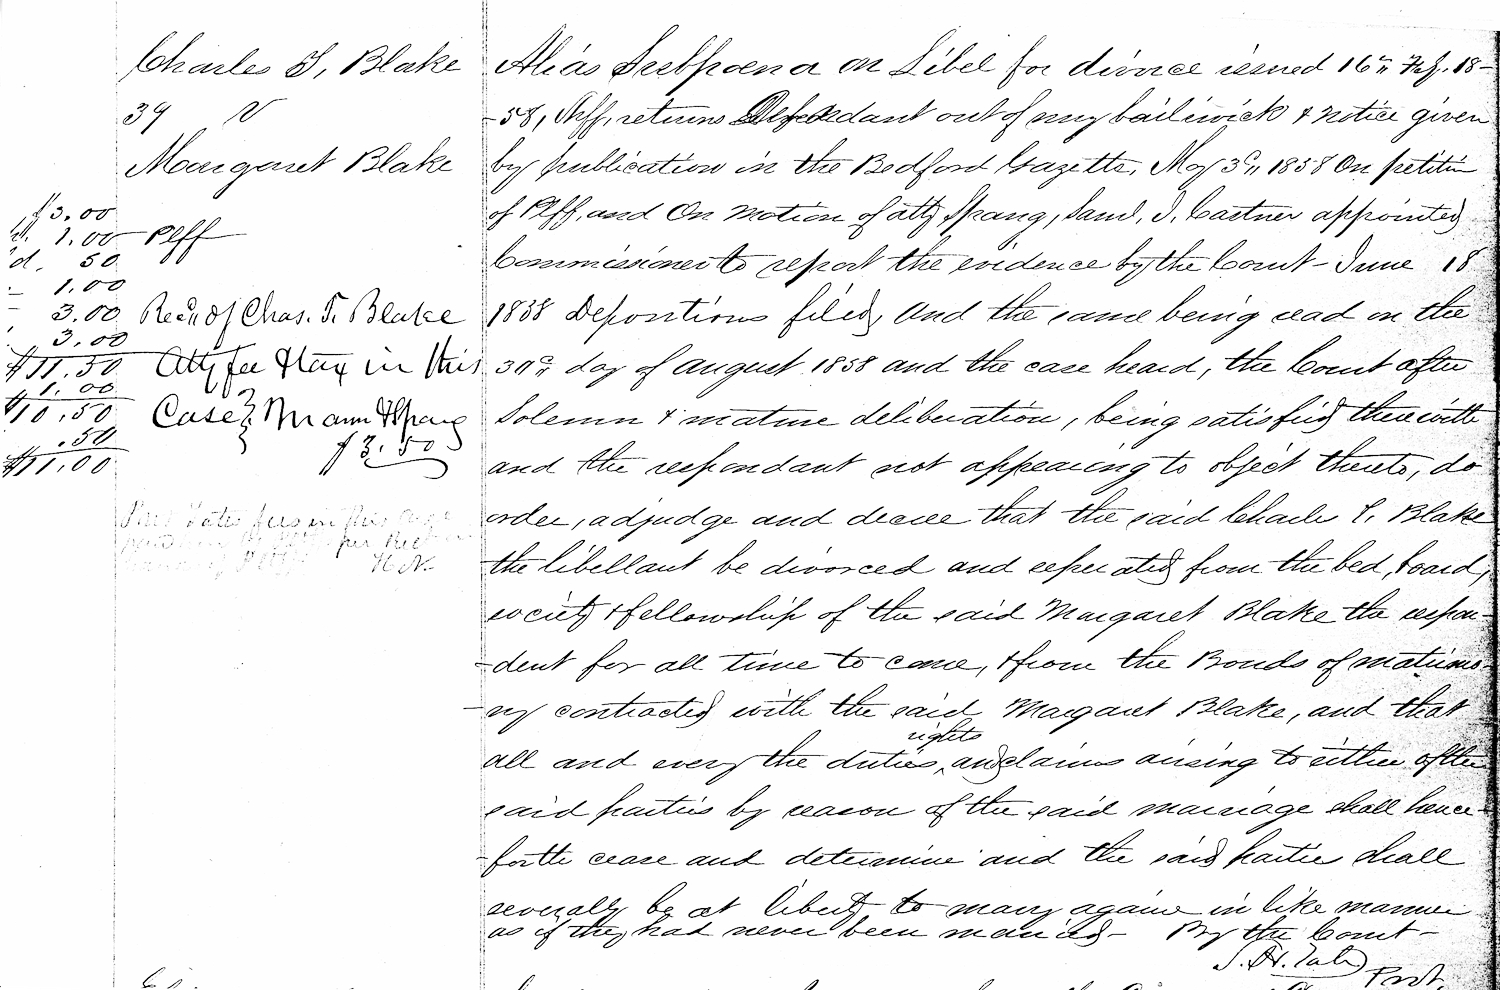 Charles T, Blake
39 V
Margaret Blake
$3.00
1.00 Plff
'd. 50
1.00
3.00 Rec'd of Chas. T. Blake
3.00
$11.50 Atty fee & tax in this
1.00
$10.50 Case Mann & Spang
.50 $3.50
$11.00
in this
per Rec
Alias Subpoena on Libel for divorce issued 16" 18-
-58, Shff, returns Defendant out of my bailiwick & notice given
by publication in the Bedford Gazette, May 3d, 1858 On petition
of Plff, and On Motion of atty Spang, Saml. J. Castner appointed
Commissioner to report the evidence by the Court - June 18
1858 Depositions filed, And the same being read on the
day of August 1858 and the case heard, the Court after
Solemn & mature deliberation, being satisfied therewith
and the respondant not appearing to object thereto, do
order, adjudge and decree that the said Charles T. Blake
the libellant be divorced and seperated from the bed, board,
society & fellowship of the said Margaret Blake the respon-
-dent for all time to come, & from the Bonds of matrimo-
-ny contracted with the said Margaret Blake, and that
all and every the duties, rights and claims arising to either of the
said parties by reason of the said marriage shall hence-
-forth cease and determine and the said parties shall
severally be at liberty to marry againe in like manner
as if they had never been married - By the Court -
S. H. Tate
Prot.